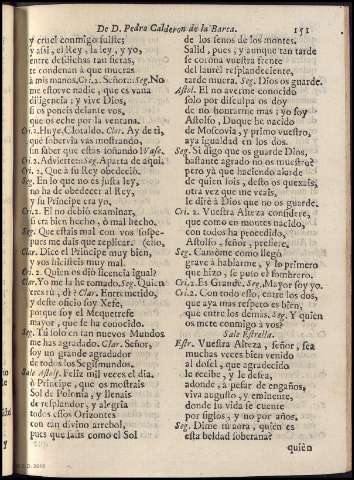 De D. Pedro Calderon de la Barca. 151
y cruel conmigo fuiste;
y assi, el Rey, la ley, y yo,
entre desdichas tan fieras,
te condenan à que mueras
à mis manos. Cri. 2. Señor: Seg. No
me estorve nadie, que es vana
diligencia; y vive Dios,
si os poneis delante vos,
que os eche por la ventana.
Cri. 2. Huye, Clotaldo. Clar. Ay de tì,
què sobervia vas mostrando,
sin saber que estàs soñando! Vase.
Cri. 2. Advierte: Seg. Aparta de aqui.
Cri. 2. Que à su Rey obedeciò.
Seg. En lo que no es justa ley,
no ha de obedecer al Rey,
y su Principe era yo.
Cri. 2. El no debiò examinar,
si es bien hecho, ò mal hecho.
Seg. Que estais mal con vos sospe-
pues me dais que replicar. (cho,
Clar. Dice el Principe muy bien,
y vos hicisteis muy mal.
Cri. 2. Quien os diò licencia igual?
Clar. Yo me la he tomado. Seg. Quien
eres tù, di? Clar. Entremetido,
y deste oficio soy Xefe,
porque soy el Mequetrefe
mayor, que se ha conocido.
Seg. Tù solo en tan nuevos Mundos
me has agradado. Clar. Señor,
soy un grande agradador
de todos los Segismundos.
Sale Astolf. Feliz mil veces el dia,
ò Principe, que os mostrais
Sol de Polonia, y llenais
de resplandor, y alegria
todos estos Orizontes
con tan divino arrebol,
pues que salis como el Sol
de los senos de los montes.
Salid, pues, y aunque tan tarde
se corona vuestra frente
del laurel resplandeciente,
tarde muera. Seg. Dios os guarde.
Astol. El no averme conocido
solo por disculpa os doy
de no honrarme mas; yo soy
Astolfo, Duque he nacido
de Moscovia, y primo vuestro,
aya igualdad en los dos.
Seg. Si digo que os guarde Dios,
bastante agrado no os muestro?
pero yà que haciendo alarde
de quien sois, desto os quexais,
otra vez que me veais,
le dirè à Dios que no os guarde.
Cri. 2. Vuestra Alteza considere,
que como en montes nacido,
con todos ha procedido,
Astolfo, señor, prefiere.
Seg. Cansòme como llegò
grave à hablarme, y lo primero
que hizo, se puso el sombrero.
Cri. 2. Es Grande. Seg. Mayor soy yo.
Cri. 2. Con todo esso, entre los dos,
que aya mas respeto es bien,
que entre los demàs. Seg. Y quien
os mete conmigo à vos?
Sale Estrella.
Estr. Vuestra Alteza, señor, sea
muchas veces bien venido
al dosel, que agradecido
le recibe, y le desea,
adonde, à pesar de engaños,
viva augusto, y eminente,
donde su vida se cuente
por siglos, y no por años,
Seg. Dime tù aora, quien es
esta beldad soberana?
quièn